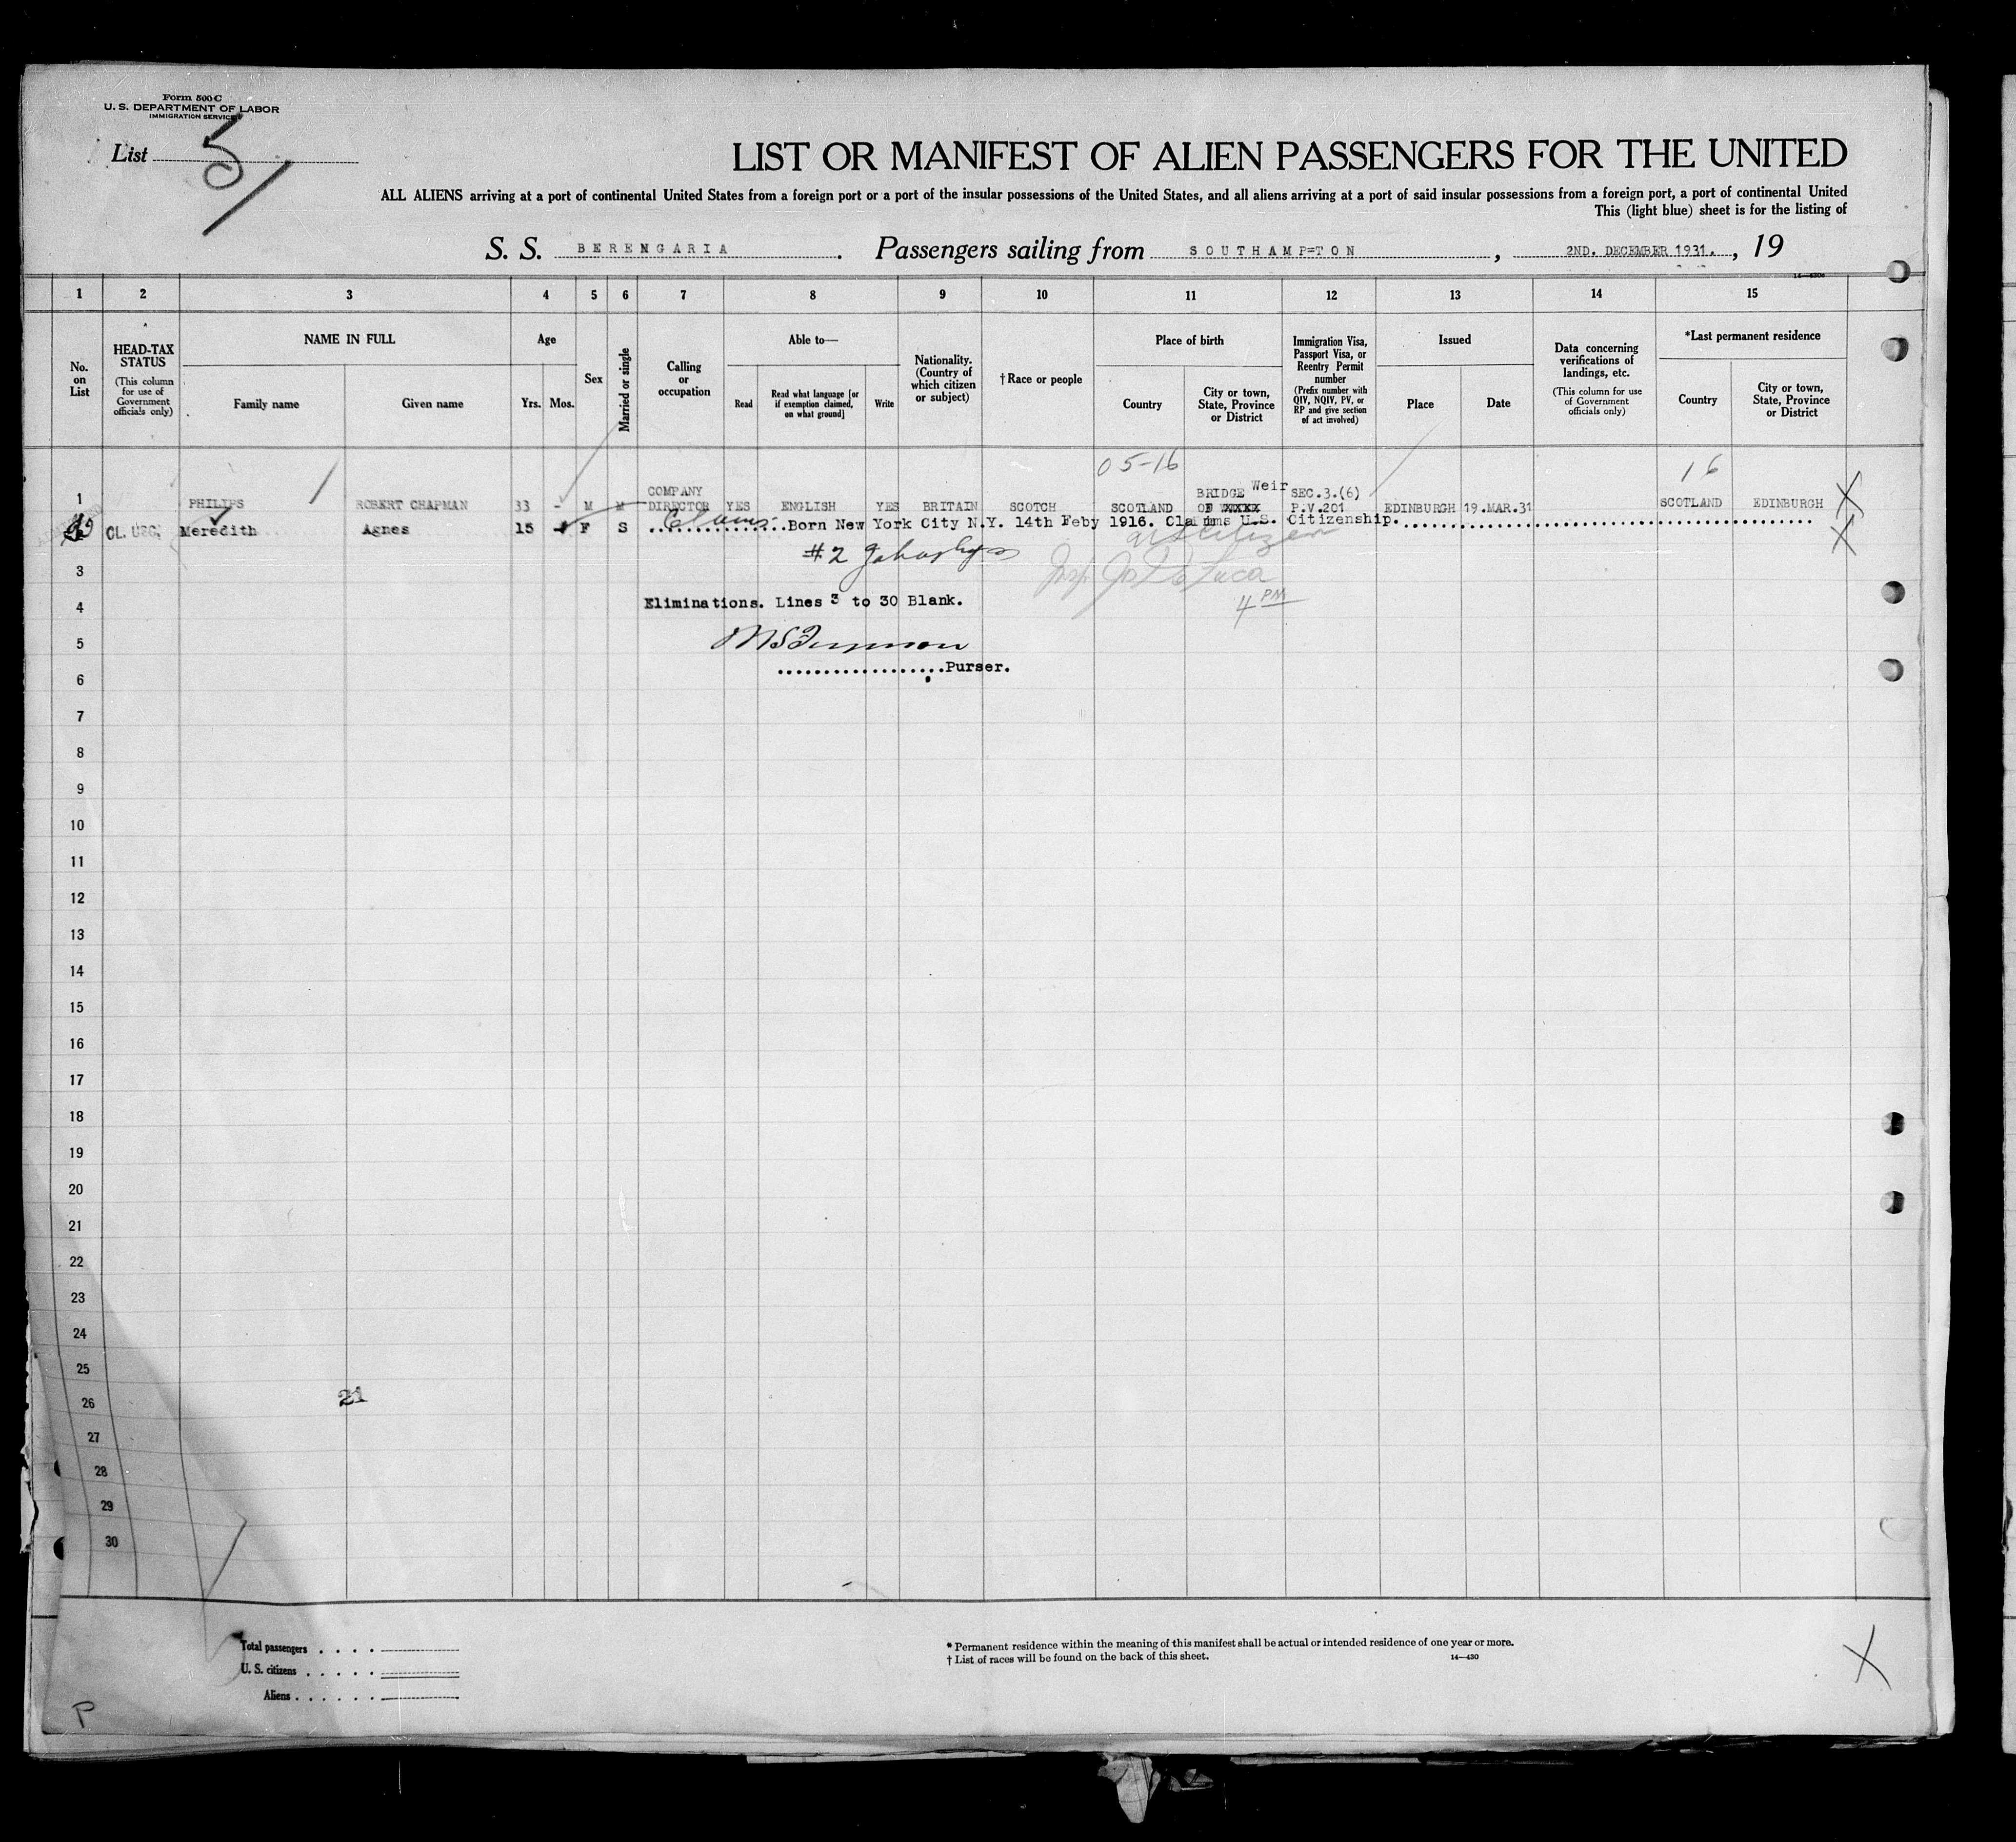 Form 500 C
U. S. DEPARTMENT OF LABOR
IMMIGRATION SERVICE
List 5
LIST OR MANIFEST OF ALIEN PASSENGERS FOR THE UNITED
ALL ALIENS arriving at a port of continental United States from a foreign port or a port of the insular possessions of the United States, and all aliens arriving at a port of said insular possessions from a foreign port, a port of continental United
This (light blue) sheet is for the listing of
S. S. BERENGARIA. Passengers sailing from SOUTHAMP=TON, 2ND. DECEMBER 1931., 19
1 2 3 4 5 6 7 8 9 10 11 12 13 14 15
No. on List
HEAD-TAX STATUS
(This column for use of Government officials only)
NAME IN FULL
Family name
Given name
Age
Yrs. Mos.
Sex
Married or single
Calling or occupation
Able to—
Read
Read what language [or if exemption claimed, on what ground]
Write
Nationality. (Country of which citizen or subject)
†Race or people
Place of birth
Country
City or town, State, Province or District
Immigration Visa, Passport Visa, or Reentry Permit number
(Prefix number with QIV, NQIV, PV, or RP and give section of act involved)
Issued
Place
Date
Data concerning verifications of landings, etc.
(This column for use of Government officials only)
*Last permanent residence
Country
City or town, State, Province or District
05-16
16
1 PHILIPS ROBERT CHAPMAN 33 - M M COMPANY DIRECTOR YES ENGLISH YES BRITAIN SCOTCH SCOTLAND BRIDGE Weir OF XXXX SEC.3.(6) P.V.201 EDINBURGH 19.MAR.31 SCOTLAND EDINBURGH
2 CL. USC. Meredith Agnes 15 F S Born New York City N.Y. 14th Feby 1916. Claims U.S. Citizenship.
US Citizen
#2
3
4 Eliminations. Lines 3 to 30 Blank.
4 PM
5
Purser.
6
7
8
9
10
11
12
13
14
15
16
17
18
19
20
21
22
23
24
25
26
21
27
28
29
30
Total passengers
U. S. citizens
Aliens
* Permanent residence within the meaning of this manifest shall be actual or intended residence of one year or more.
† List of races will be found on the back of this sheet.
14—430
P